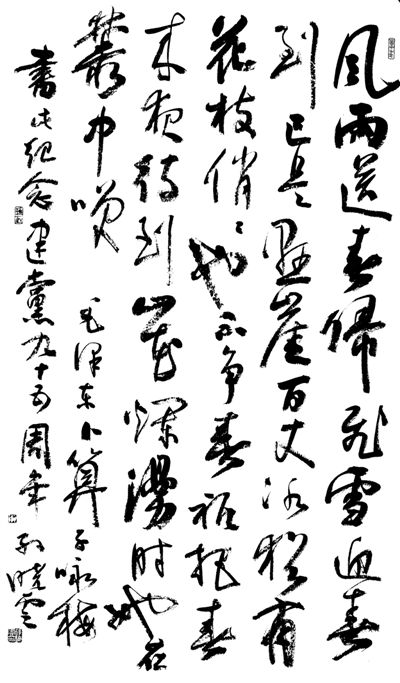 风雨送春歸飞雪迎春
到已是悬崖百丈冰犹有
花枝俏〻也不争春祇把春
来报待到山花爛漫时她在
叢中咲 毛泽东卜算子咏梅
書此纪念建黨九十五周年 孙晓云